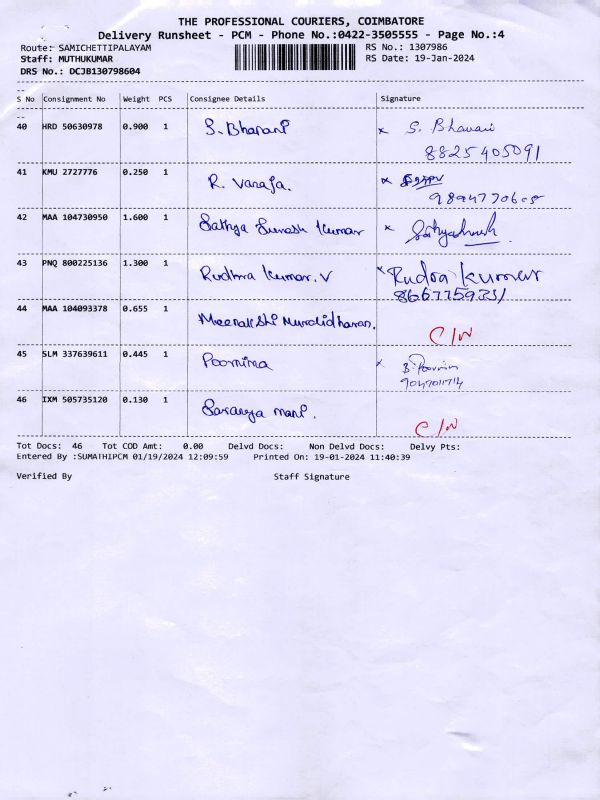 THE PROFESSIONAL COURIERS, COIMBATORE
Delivery Runsheet - PCM - Phone No.:0422-3505555 - Page No.:4
Route: SAMICHETTIPALAYAM RS No.: 1307986
Staff: MUTHUKUMAR RS Date: 19-Jan-2024
DRS No.: DCJB130798604
S No Consignment No Weight PCS Consignee Details Signature
40 HRD 50630978 0.900 1 S. Bharani x S. Bhavani
8825405091
41 KMU 2727776 0.250 1 R. Vanaja. x
42 MAA 104730950 1.600 1 Sathya Suresh Kumar x
43 PNQ 800225136 1.300 1 Rudhra Kumar. V x Rudra Kumar
44 MAA 104093378 0.655 1 Meenakshi Muralidharan. C/N
45 SLM 337639611 0.445 1 Poornima x
46 IXM 505735120 0.130 1 Saranya mani. C/N
Tot Docs: 46 Tot COD Amt: 0.00 Delvd Docs: Non Delvd Docs: Delvy Pts:
Entered By :SUMATHIPCM 01/19/2024 12:09:59 Printed On: 19-01-2024 11:40:39
Verified By Staff Signature